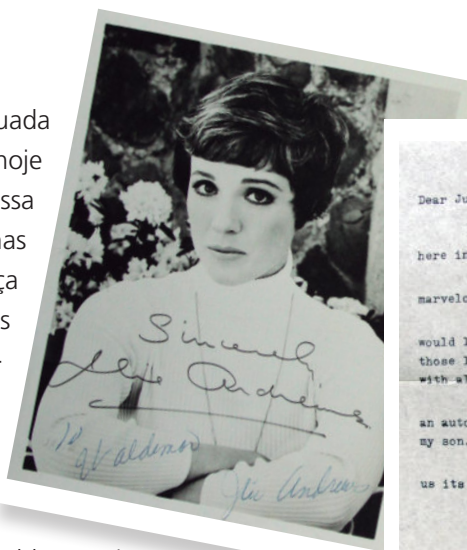 uada
hoje
ssa
nas
ça
s
Sincerely
Julie Andrews
To
Waldemar
Julie Andrews
Dear Ju
here in
marvelo
would l
those l
with al
an auto
my son.
us its